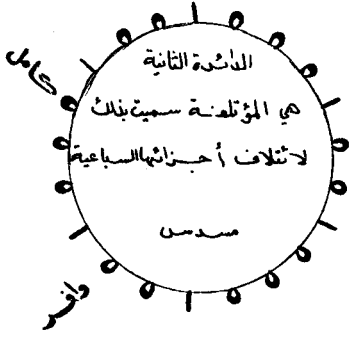 كامل
الدائرة الثانية
هي المؤتلفة سميت بذلك
لائتلاف أجزائها السباعية
مسدس
وافر